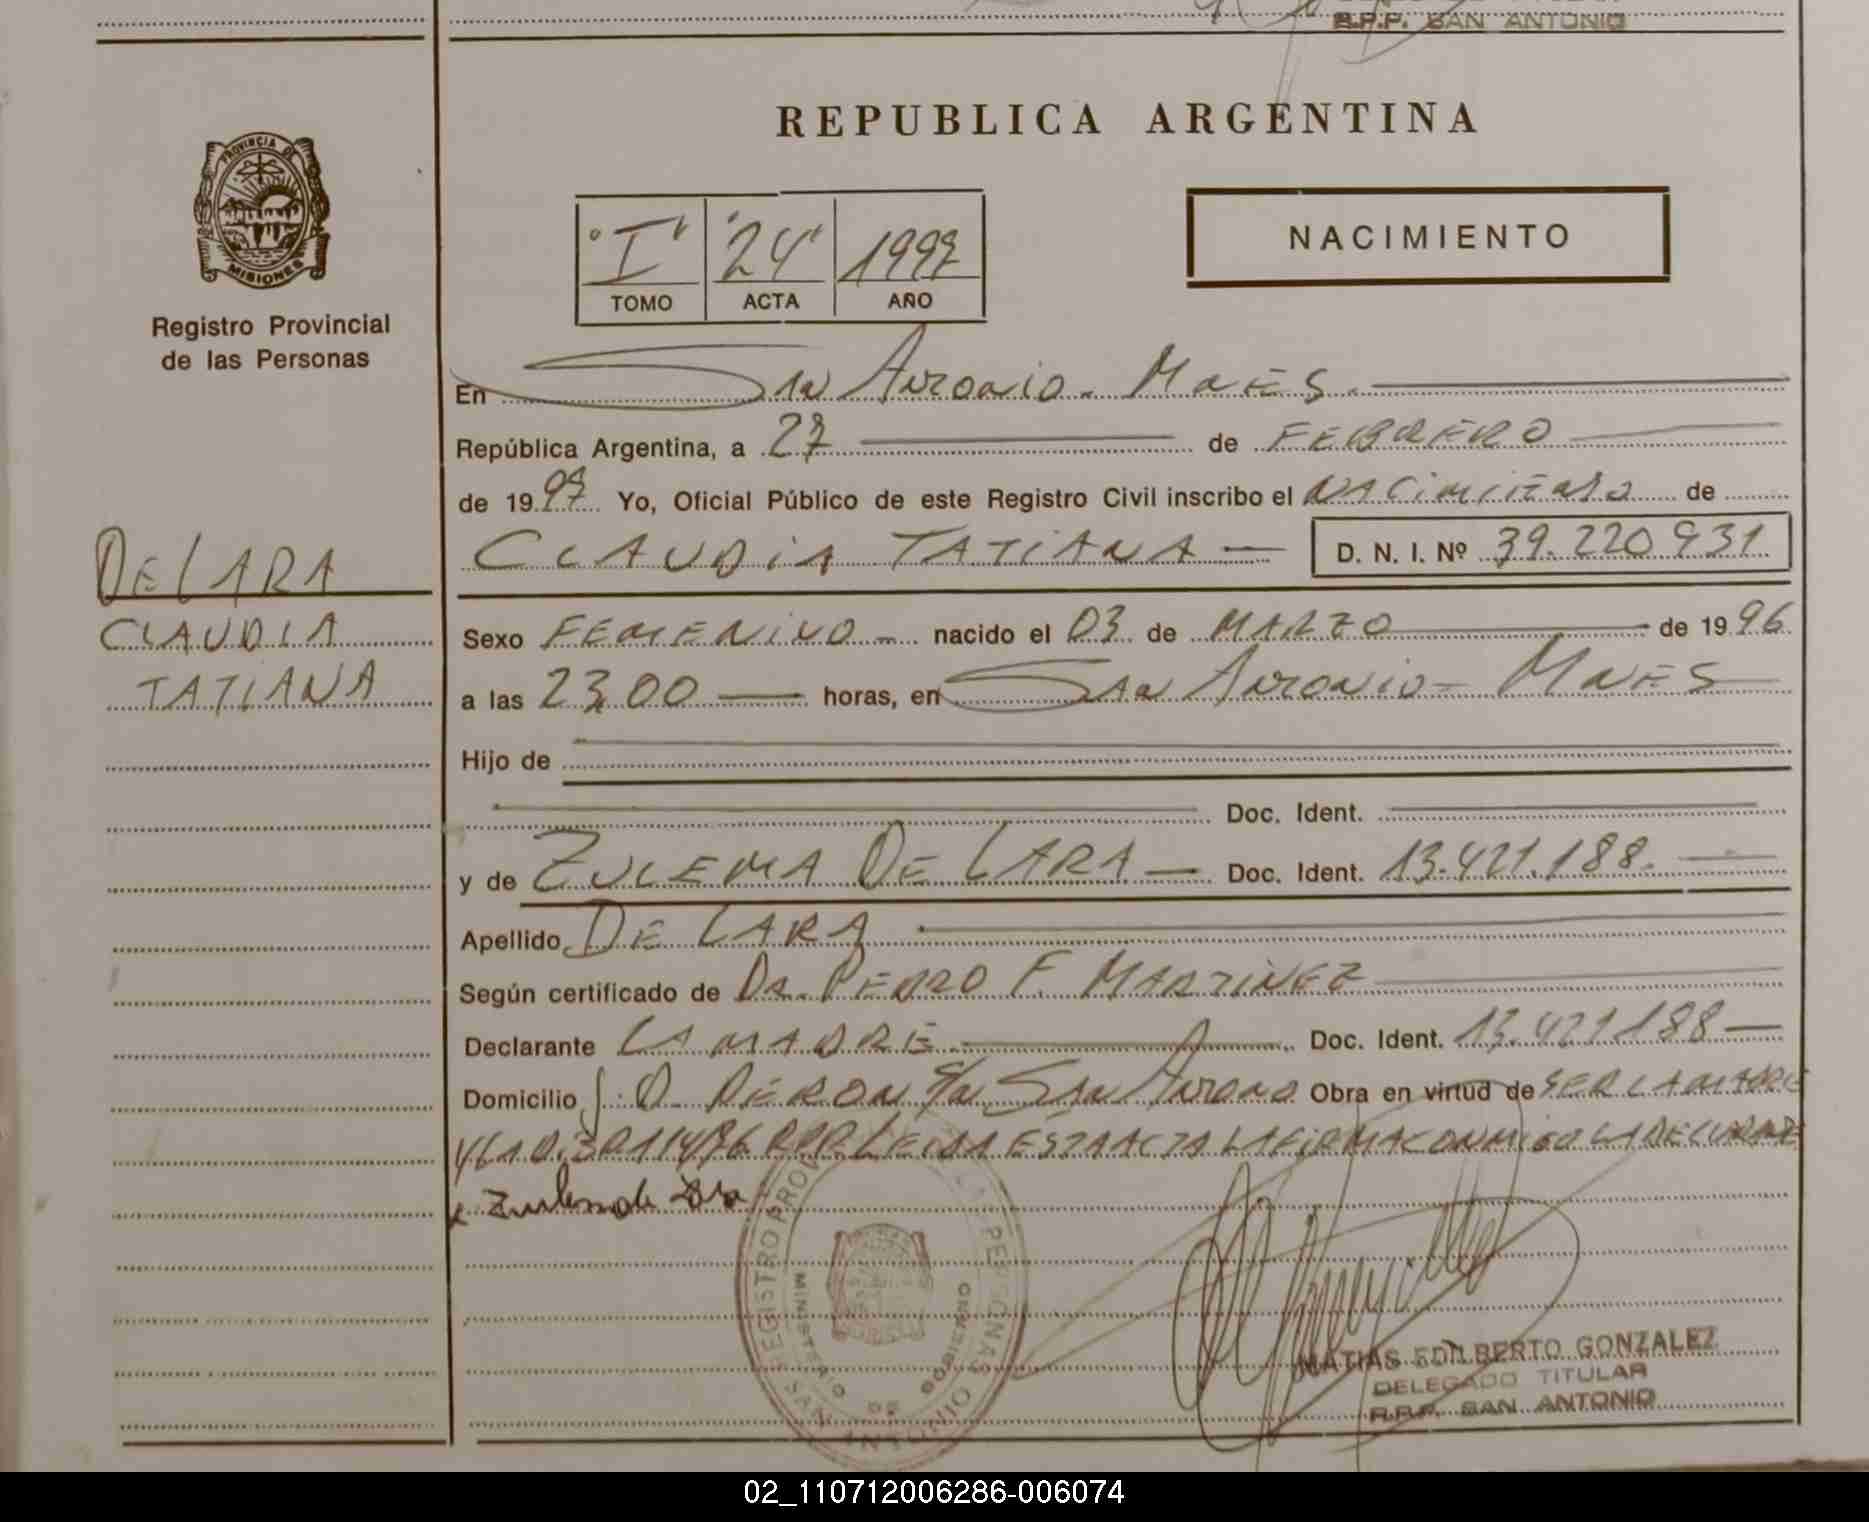 R.P.P. SAN ANTONIO
REPUBLICA ARGENTINA
PROVINCIA DE
MISIONES
Registro Provincial
de las Personas
"I" "24" 1997
TOMO ACTA AÑO
NACIMIENTO
En San Antonio - Mnes.
República Argentina, a 27 de FEBRERO
de 1997 Yo, Oficial Público de este Registro Civil inscribo el NACimiENTO de
CLAUDiA TATiANA D. N. I. Nº 39.220.931
DE LARA
CLAUDIA
TATIANA
Sexo FEMENiNO nacido el 03 de MARZO de 1996
a las 23,00 horas, en San Antonio - MnES
Hijo de
Doc. Ident.
y de ZULEMA DE LARA Doc. Ident. 13.421.188.
Apellido DE LARA
Según certificado de Dr. PEDRO F. MARTiNEZ
Declarante LA MADRE Doc. Ident. 13.421188
Domicilio J. D. PERON S/n San Antonio Obra en virtud de SER LA MADRE
LEIDA ESTA ACTA LA FIRMA CONMIGO LA DECLARANTE
Zulema de Lara
REGISTRO PROV LAS PERSONAS
MINISTERIO DE GOBIERNO
SAN ANTONIO
MATIAS EDILBERTO GONZALEZ
DELEGADO TITULAR
R.P.P. SAN ANTONIO
02_110712006286-006074